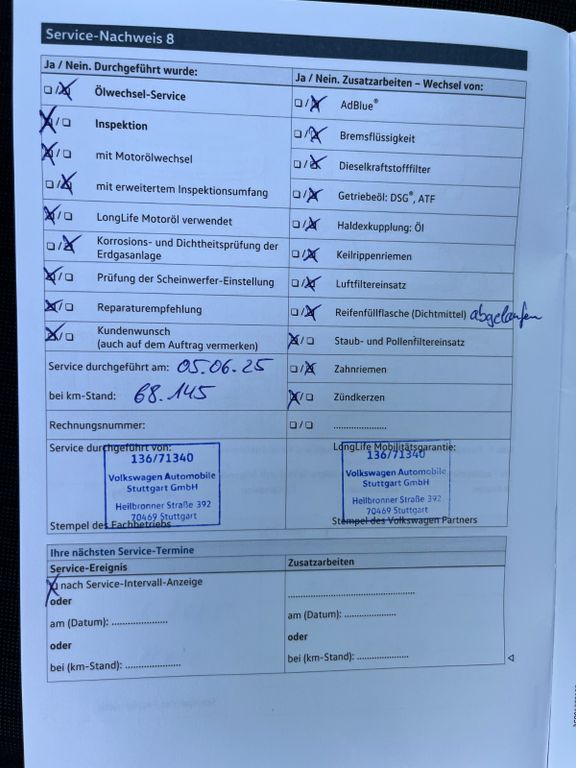 Service-Nachweis 8
Ja / Nein. Durchgeführt wurde:
Ölwechsel-Service
Inspektion
mit Motorölwechsel
mit erweitertem Inspektionsumfang
LongLife Motoröl verwendet
Korrosions- und Dichtheitsprüfung der
Erdgasanlage
Prüfung der Scheinwerfer-Einstellung
Reparaturempfehlung
Kundenwunsch
(auch auf dem Auftrag vermerken)
Service durchgeführt am: 05.06.25
bei km-Stand: 68.145
Rechnungsnummer:
Ja / Nein. Zusatzarbeiten – Wechsel von:
AdBlue®
Bremsflüssigkeit
Dieselkraftstofffilter
Getriebeöl: DSG®, ATF
Haldexkupplung: Öl
Keilrippenriemen
Luftfiltereinsatz
Reifenfüllflasche (Dichtmittel) abgelaufen
Staub- und Pollenfiltereinsatz
Zahnriemen
Zündkerzen
....................
Service durchgeführt von:
136/71340
Volkswagen Automobile
Stuttgart GmbH
Heilbronner Straße 392
70469 Stuttgart
Stempel des Fachbetriebs
LongLife Mobilitätsgarantie:
136/71340
Volkswagen Automobile
Stuttgart GmbH
Heilbronner Straße 392
70469 Stuttgart
Stempel des Volkswagen Partners
Ihre nächsten Service-Termine
Service-Ereignis
nach Service-Intervall-Anzeige
oder
am (Datum): ....................
oder
bei (km-Stand): ....................
Zusatzarbeiten
..............................................
am (Datum): ...................
oder
bei (km-Stand): ...................